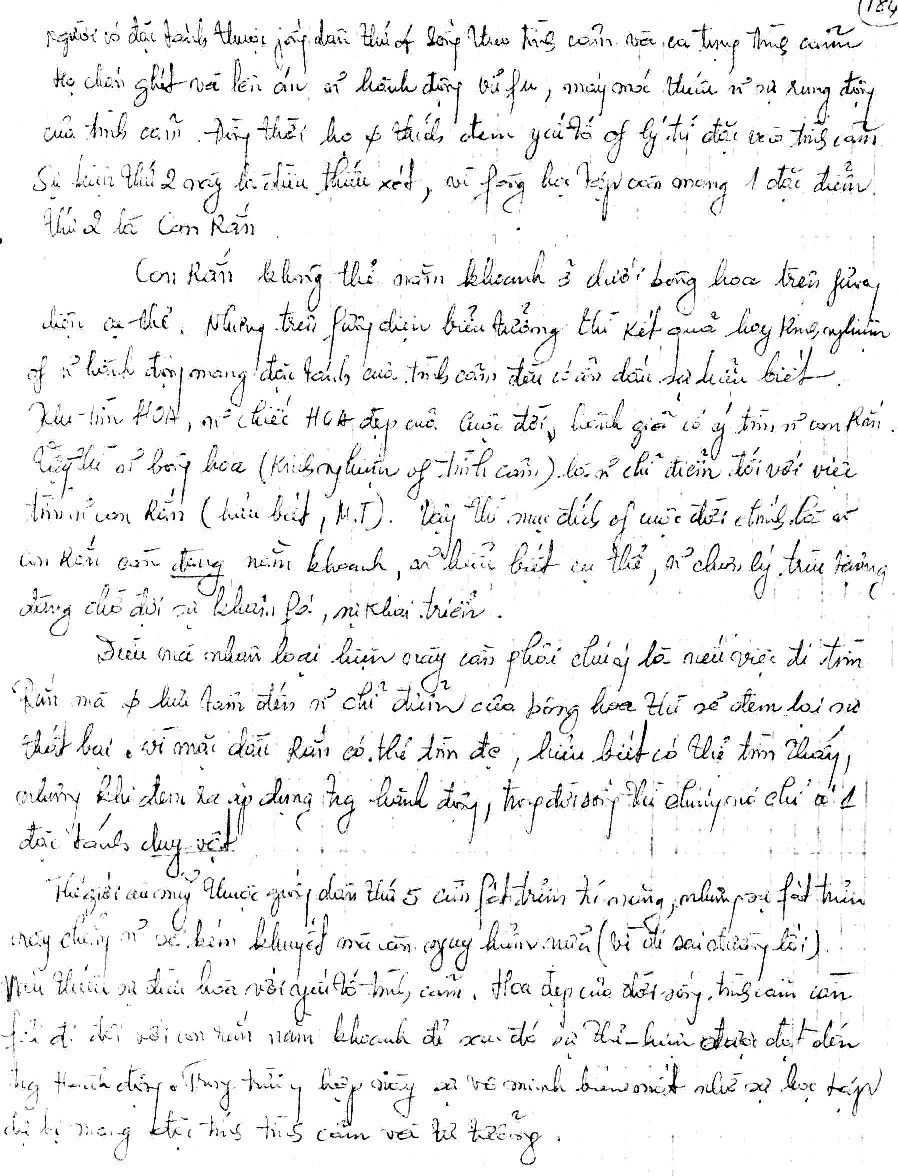 184
người có đặc tánh thuộc jống dân thứ 4 sống theo tình cảm và ca tụng tình cảm
Họ chán ghét và lên án n~ hành động vũ fu, máy móc thiếu n~ sự rung động
của tình cảm. Đồng thời họ φ thích đem yếu tố of lý trí đặt vào tình cảm
Sự kiện thứ 2 này là điều thiếu xót, vì fong học tập còn mang 1 đặc điểm
thứ 2 là Con Rắn.
Con Rắn không thể nằm khoanh ở dưới bông hoa trên fương
diện cụ thể. Nhưng trên fương diện biểu tưởng thì kết quả hay kinh nghiệm
of n~ hành động mang đặc tánh của tình cảm đều có ẩn dấu sự hiểu biết.
Khi tìm HOA, n~ chiếc HOA đẹp của Cuộc đời, hành giả có ý tìm n~ con Rắn.
Vậy thì n~ bông hoa (Kinh nghiệm of tình cảm) là n~ chỉ điểm đối với việc
tìm n~ con Rắn (hiểu biết, M.T). Vậy thì mục đích of cuộc đời chính là n~
con Rắn còn đang nằm khoanh, n~ hiểu biết cụ thể, n~ chơn lý trừu tượng
đang chờ đợi sự khám fá, sự khai triển.
Điều mà nhân loại hiện nay cần phải chú ý là nếu việc đi tìm
Rắn mà φ lưu tâm đến n~ chỉ điểm của bông hoa thì sẽ đem lại sự
thất bại. vì mặc dầu Rắn có thể tìm đc, hiểu biết có thể tìm thấy,
nhưng khi đem ra áp dụng tng hành động, trong đời sống thì chúng nó chỉ có 1
đặc tánh duy vật
Thế giới âu mỹ thuộc giống dân thứ 5 cần fát triển trí năng, nhưng sự fát triển
này chẳng n~ sẽ kém khuyết mà còn nguy hiểm nữa (vì đi sai đường lối).
Nếu thiếu sự điều hòa với yếu tố tình cảm. Hoa đẹp của đời sống tình cảm cần
fải đi đôi với con rắn nằm khoanh để sau đó sự thể-hiện được đạt đến
tng Hành động. Trong trường hợp này sự vô minh biến mất nhờ sự học tập
dị bị mang đặc tính tình cảm và tư tưởng.